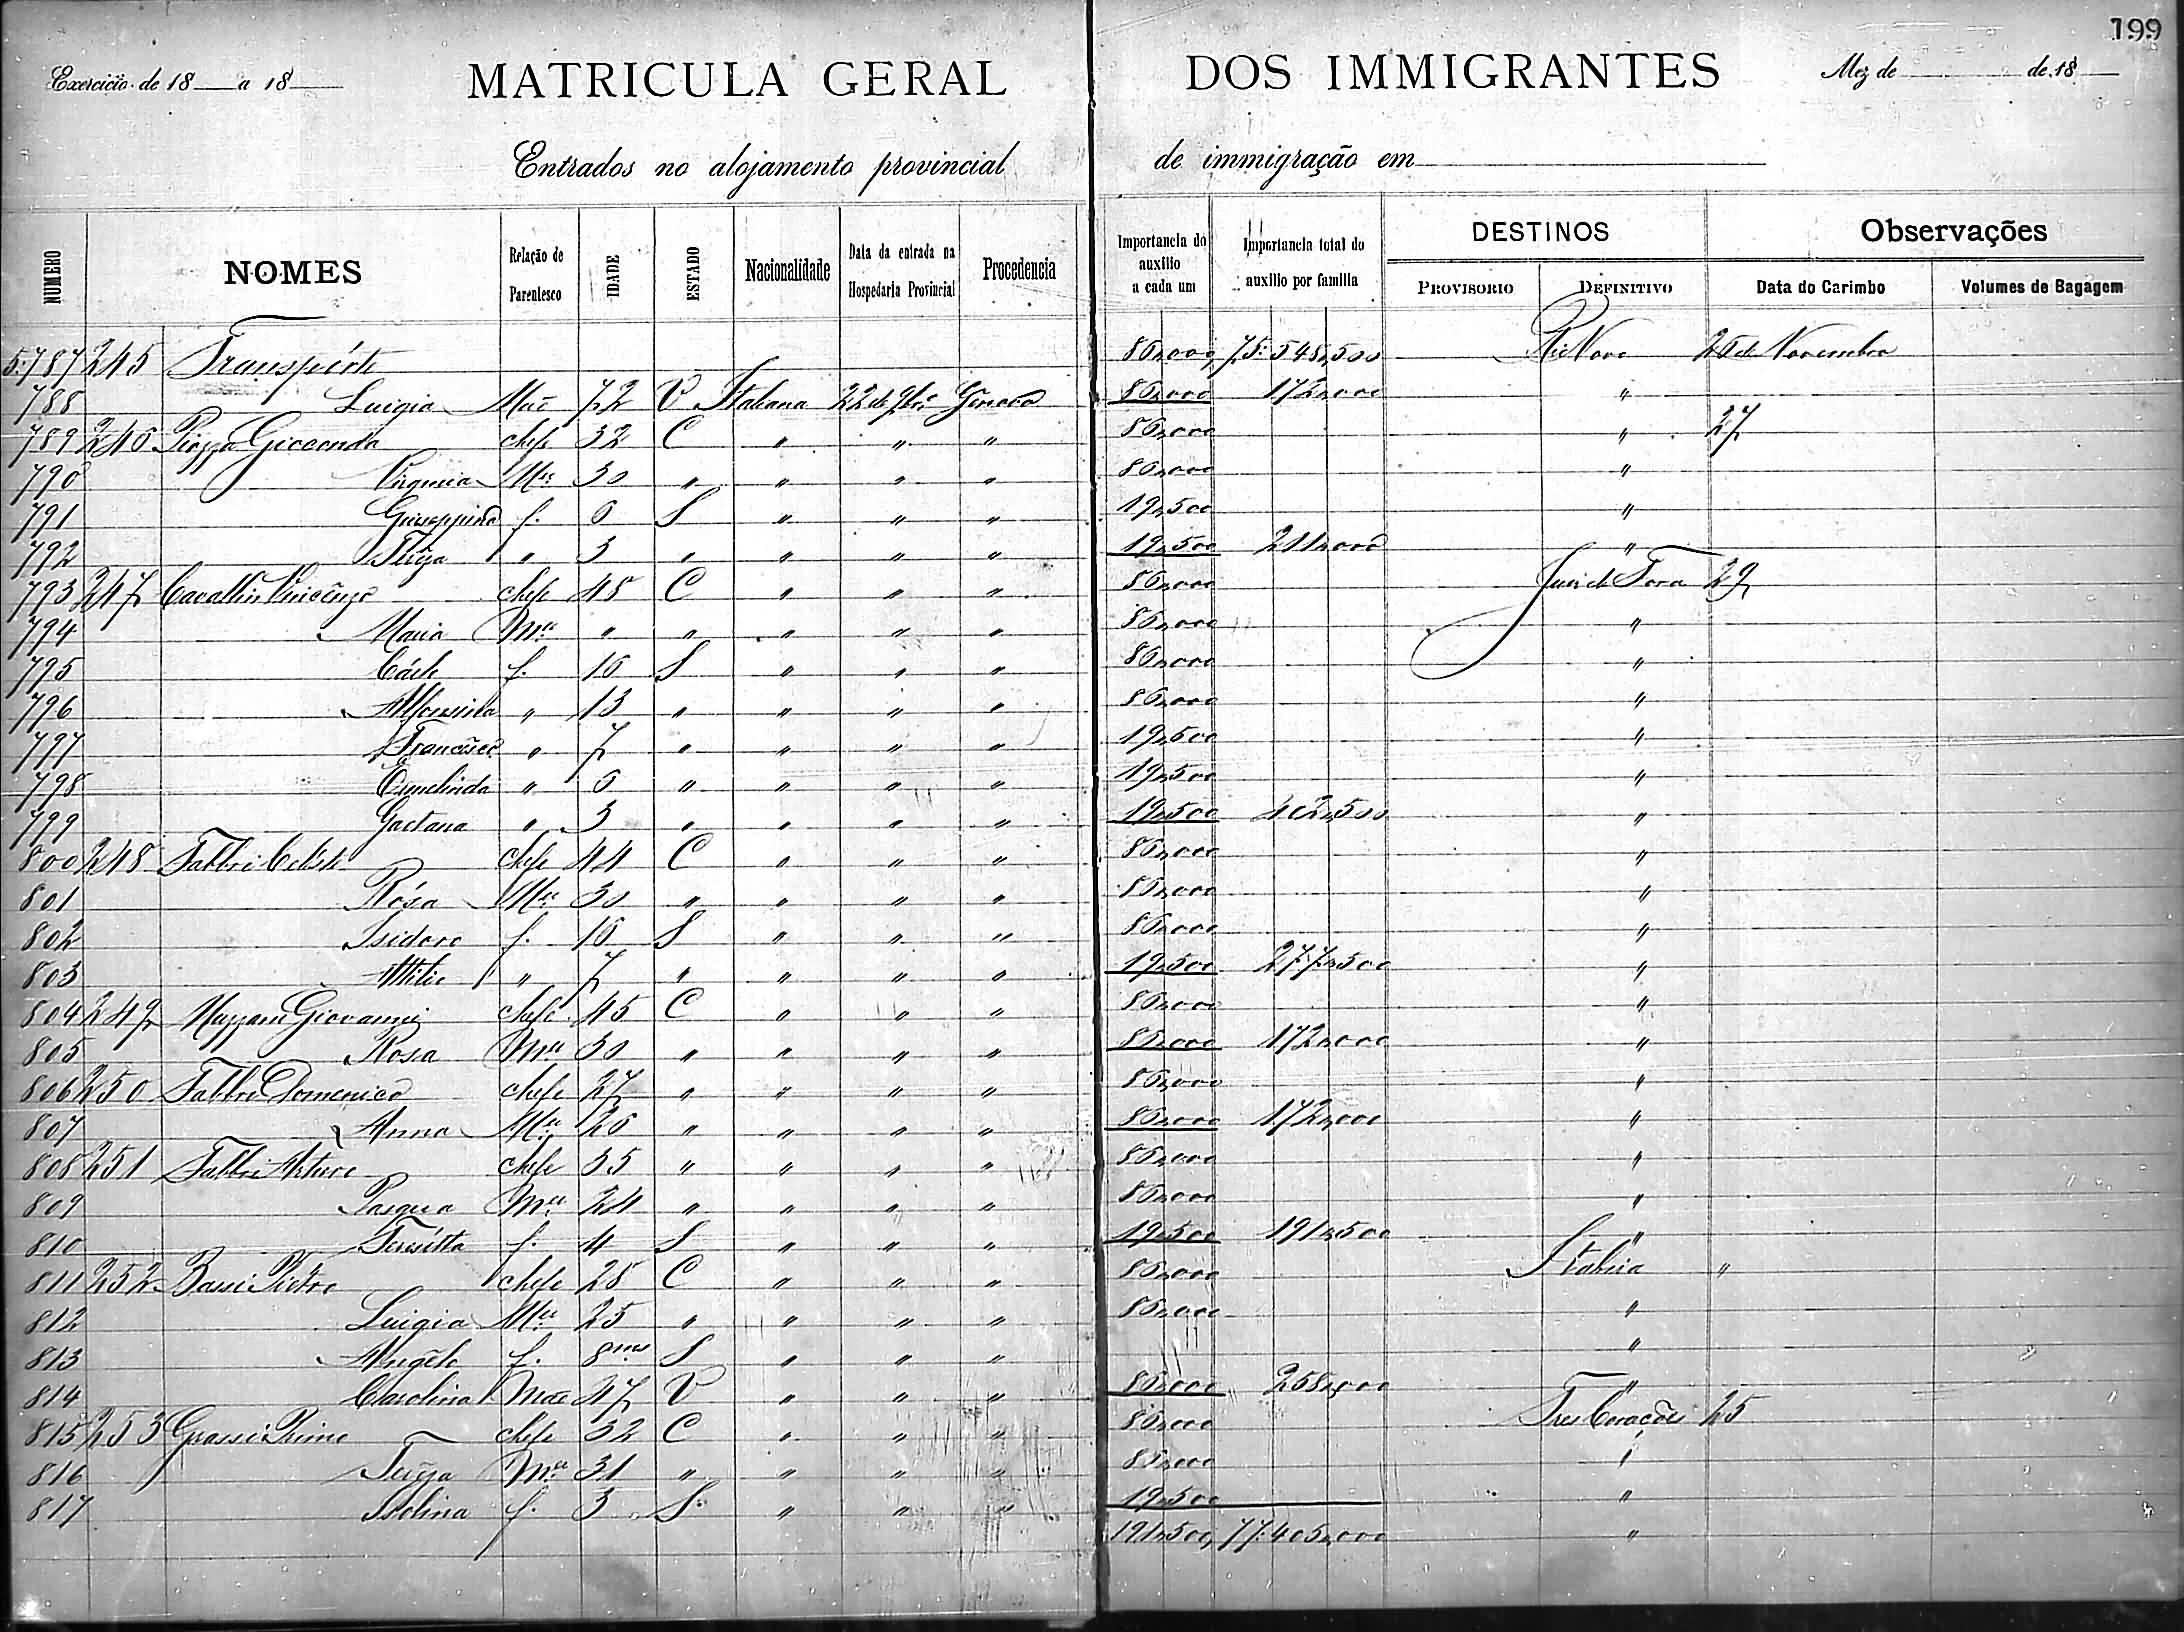 199
Exercicio de 18 a 18 MATRICULA GERAL DOS IMMIGRANTES Mez de de 18
Entrados no alojamento provincial de immigração em
NUMERO NOMES Relação de Parentesco IDADE ESTADO Nacionalidade Data da entrada na Hospedaria Provincial Procedencia Importancia do auxilio a cada um Importancia total do auxilio por familia DESTINOS PROVISORIO DEFINITIVO Observações Data do Carimbo Volumes de Bagagem
5.787 245 Transpórte 86,000 75:548,500 Rio Novo 26 de Novembro
788 Luigia Mãe 72 V Italiana 22 de 9bro Genova 86,000 172,000 "
789 246 Piazza Gioconda chefe 32 C " " " 86,000 " 27
790 Virginia Mer 30 " " " " 86,000 "
791 Giuseppina f. 6 S " " " 19,500 "
792 Thereza " 3 " " " " 19,500 211,000 "
793 247 Cavallin Vincenzo chefe 45 C " " " 86,000 Juiz de Fora 29
794 Maria Mer " " " " " 86,000 "
795 f. 16 S " " " 86,000 "
796 Alfonsina " 13 " " " " 86,000 "
797 Francisco " 7 " " " " 19,500 "
798 Ermelinda " 6 " " " " 19,500 "
799 Gaetana " 3 " " " " 19,500 402,500 "
800 248 Fabbri Celeste chefe 44 C " " " 86,000 "
801 Rósa Mer 30 " " " " 86,000 "
802 Isidoro f. 16 S " " " 86,000 "
803 Attilio " 7 " " " " 19,500 277,500 "
804 249 Mazzani Giovanni chefe 45 C " " " 86,000 "
805 Rosa Mer 30 " " " " 86,000 172,000 "
806 250 Fabbri Domenico chefe 27 " " " " 86,000 "
807 Anna Mer 26 " " " " 86,000 172,000 "
808 251 Fabbri Arturo chefe 35 " " " " 86,000 "
809 Pasqua Mer 24 " " " " 86,000 "
810 f. 4 S " " " 19,500 191,500 "
811 252 Bassi Pietro chefe 28 C " " " 86,000 Itabira "
812 Luigia Mer 25 " " " " 86,000 "
813 Angelo f. 8 mes S " " " "
814 Carolina Mãe 47 V " " " 86,000 258,000 "
815 253 Grassi Primo chefe 32 C " " " 86,000 Tres Corações 25
816 Mer 31 " " " " 86,000 "
817 Isolina f. 3 S " " " 19,500 "
191,500 77:405,000 "